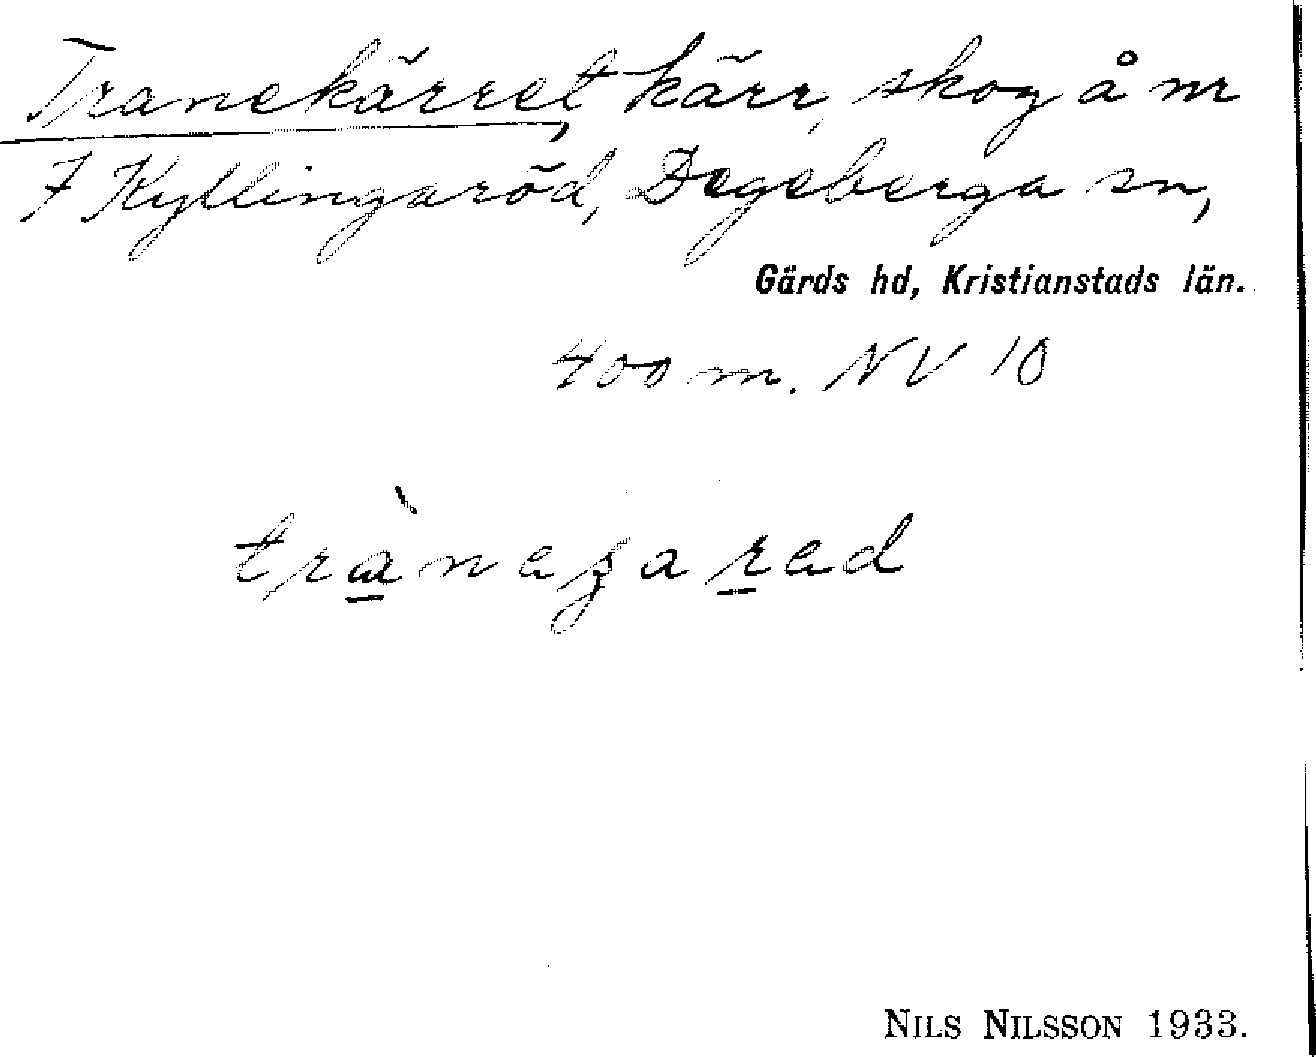 Tranekärret, kärr, skog å nr
7 Kyllingaröd, Degeberga sn,
Gärds hd, Kristianstads län.
400 m. NV 10
NILS NILSSON 1933.